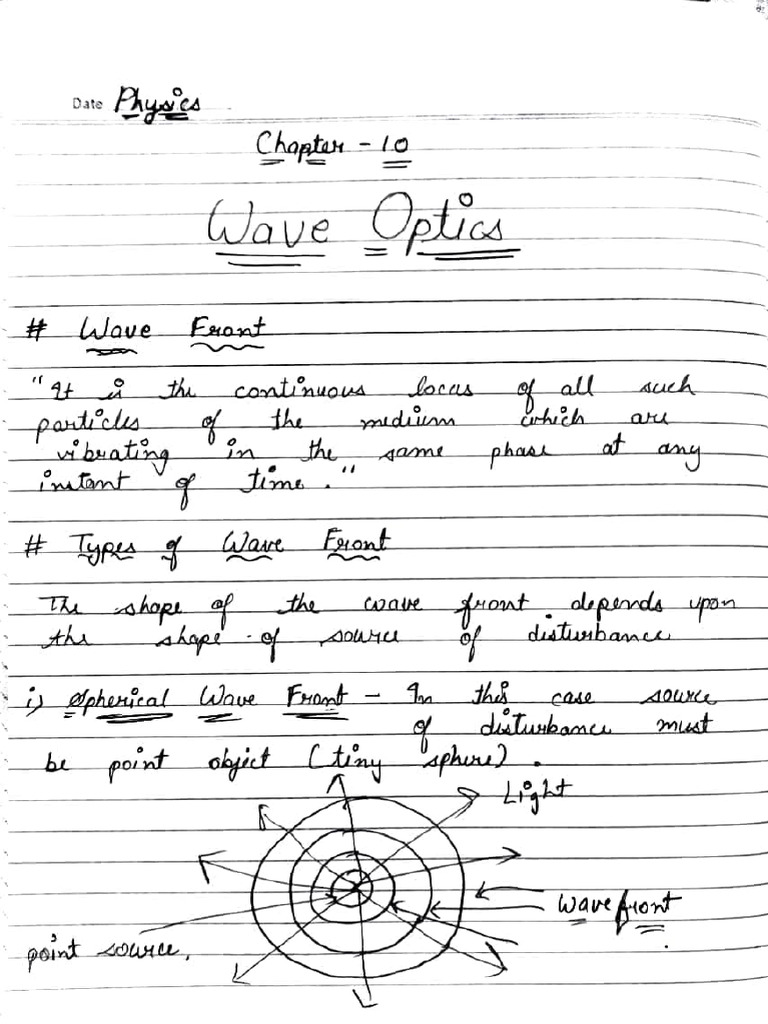 Date Physics
Chapter - 10
Wave Optics
# Wave Front
"It is the continuous locus of all such
particles of the medium which are
vibrating in the same phase at any
instant of time."
# Types of Wave Front
The shape of the wave front depends upon
the shape of source of disturbance
i) Spherical Wave Front - In this case source
of disturbance must
be point object (tiny sphere).
Light
Wavefront
point source.